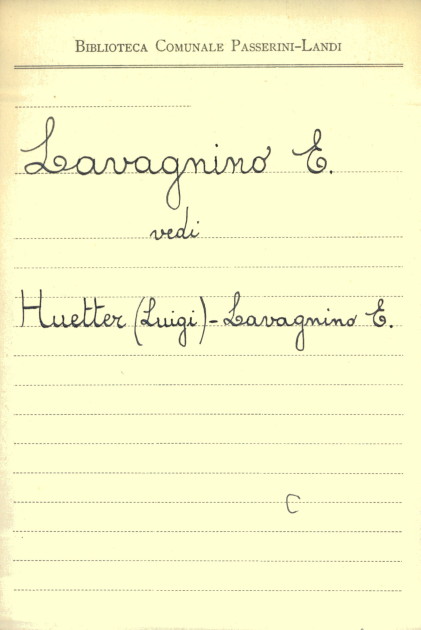 Biblioteca Comunale Passerini-Landi
Lavagnino E.
vedi
Huetter (Luigi) - Lavagnino E.
C